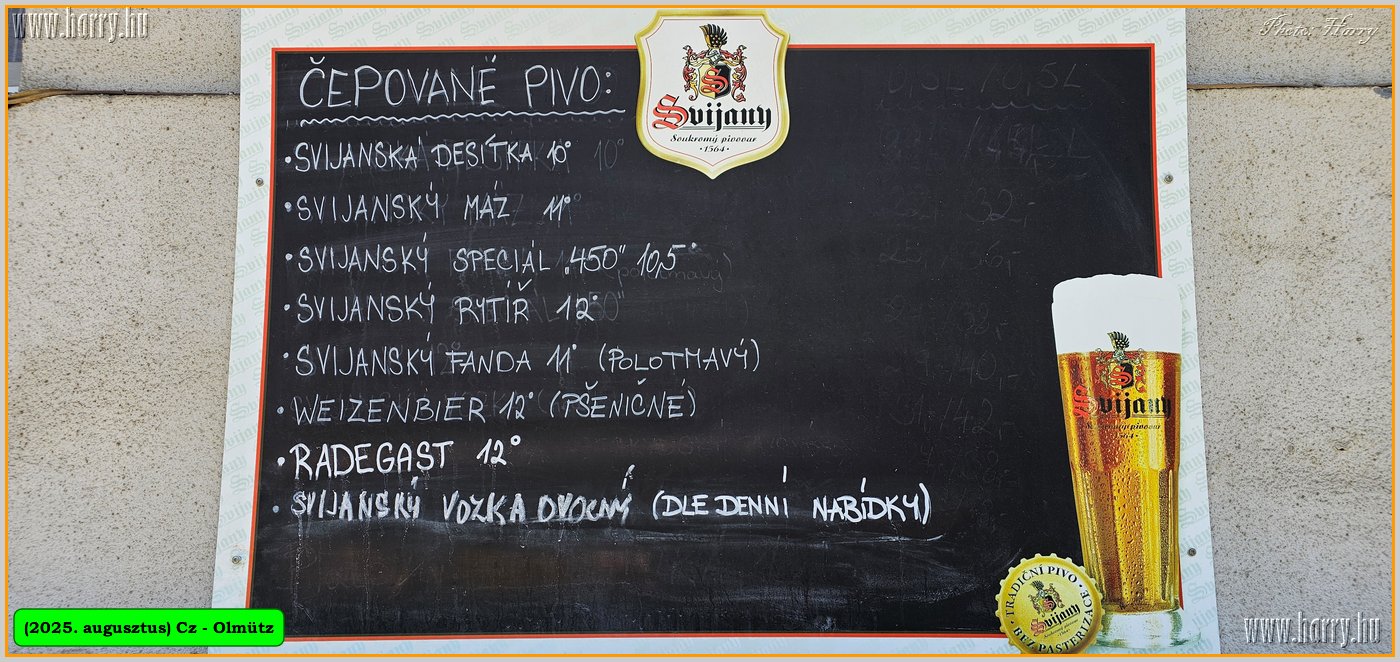 www.harry.hu
Photo: Harry
Svijany
Soukromý pivovar
·1564·
ČEPOVANÉ PIVO:
•SVIJANSKÁ DESÍTKA 10°
•SVIJANSKÝ MÁZ 11°
•SVIJANSKÝ SPECIÁL „450" 10,5°
•SVIJANSKÝ RYTÍŘ 12°
•SVIJANSKÝ FANDA 11° (POLOTMAVÝ)
•WEIZENBIER 12° (PŠENIČNÉ)
•RADEGAST 12°
•SVIJANSKÝ VOZKA OVOCNÝ (DLE DENNÍ NABÍDKY)
Svijany
Soukromý pivovar
1564
TRADIČNÍ PIVO • BEZ PASTERIZACE •
Svijany
(2025. augusztus) Cz - Olmütz
www.harry.hu